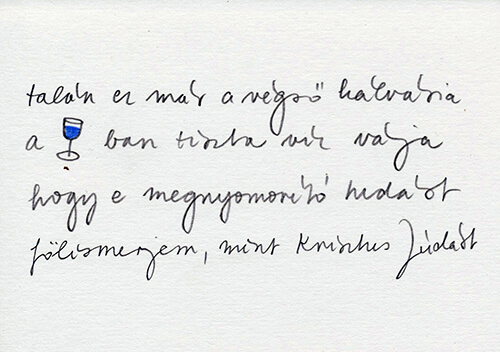 talán ez már a végső kálvária
a ban tiszta víz várja
hogy e megnyomorító tudást
fölismerjem, mint Krisztus Júdást